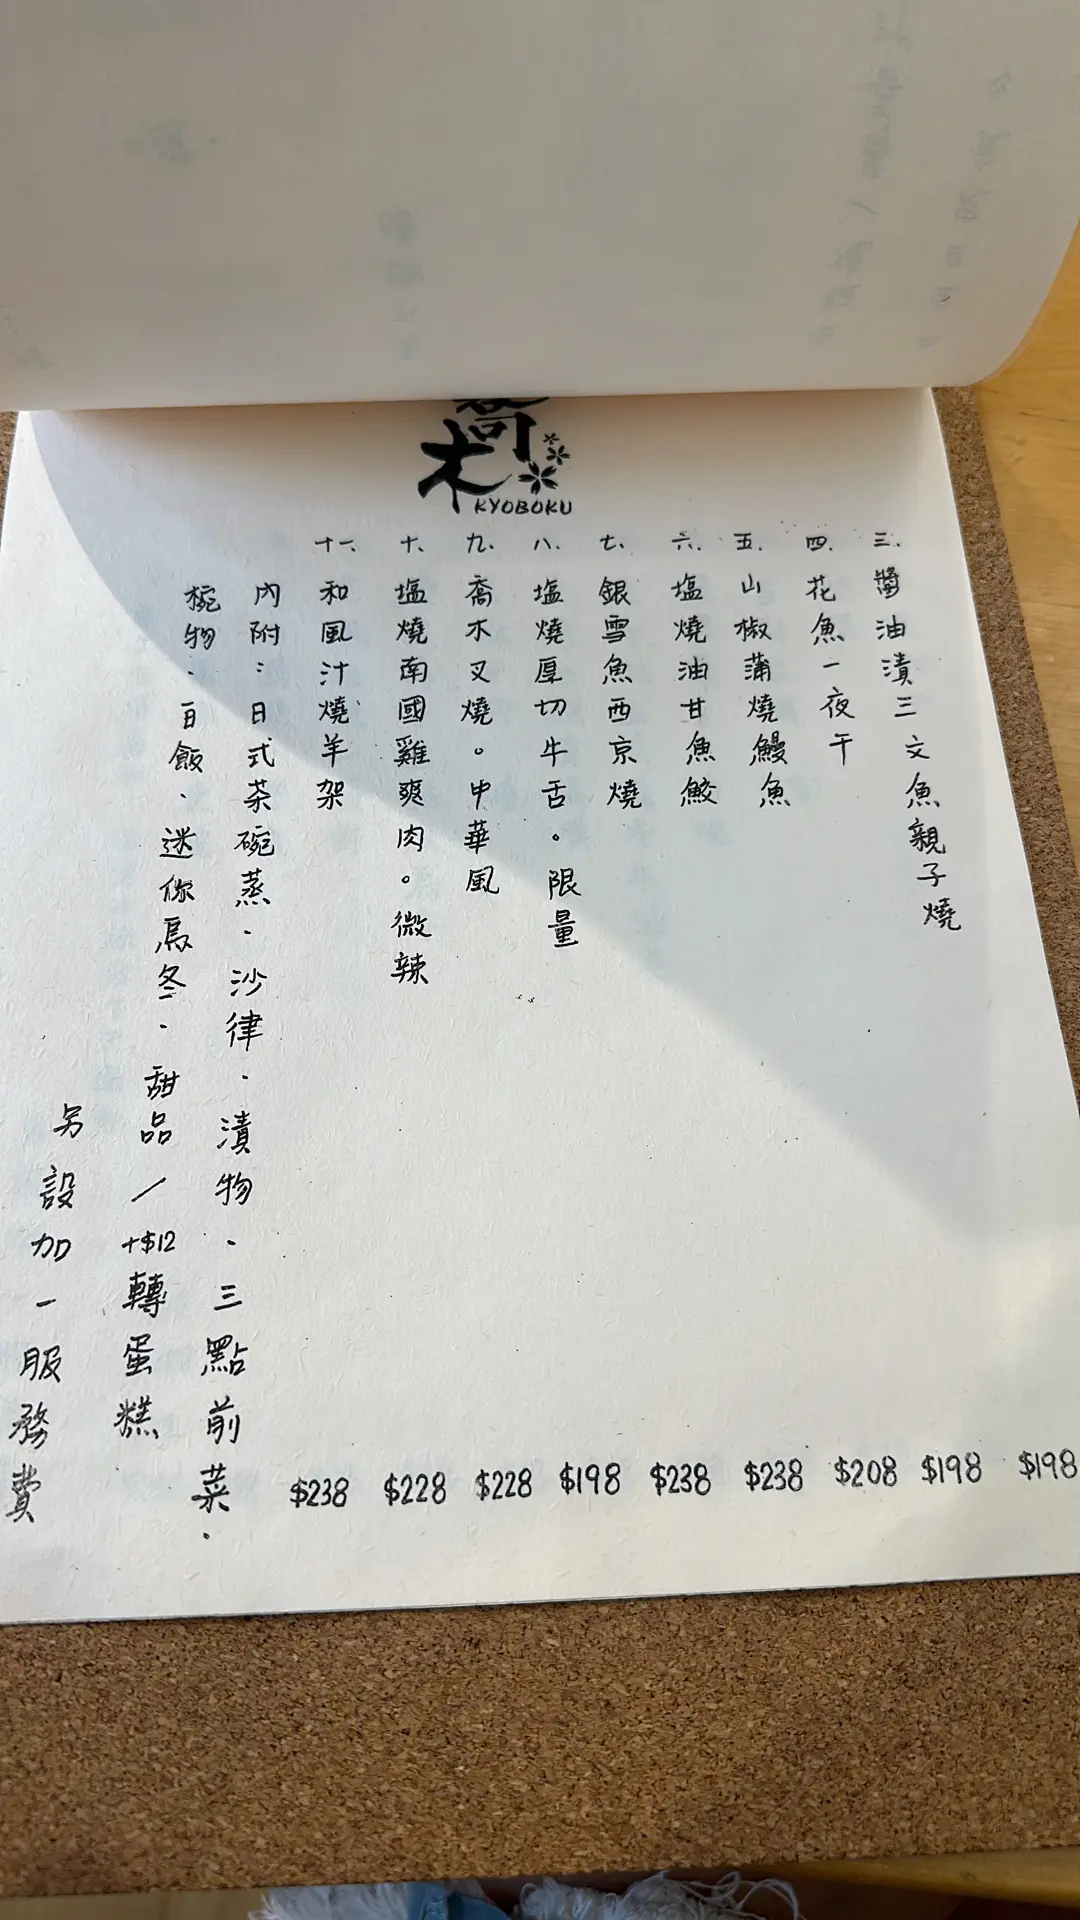 喬木
KYOBOKU
三. 醬油漬三文魚親子燒 $198
四. 花魚一夜干 $198
五. 山椒蒲燒鰻魚 $208
六. 塩燒油甘魚鮫 $238
七. 銀雪魚西京燒 $238
八. 塩燒厚切牛舌。限量 $198
九. 喬木叉燒。中華風 $228
十. 塩燒南國雞爽肉。微辣 $228
十一. 和風汁燒羊架 $238
內附：日式茶碗蒸．沙律．漬物．三點前菜．
椀物．白飯．迷你烏冬．甜品／+$12轉蛋糕
另設加一服務費